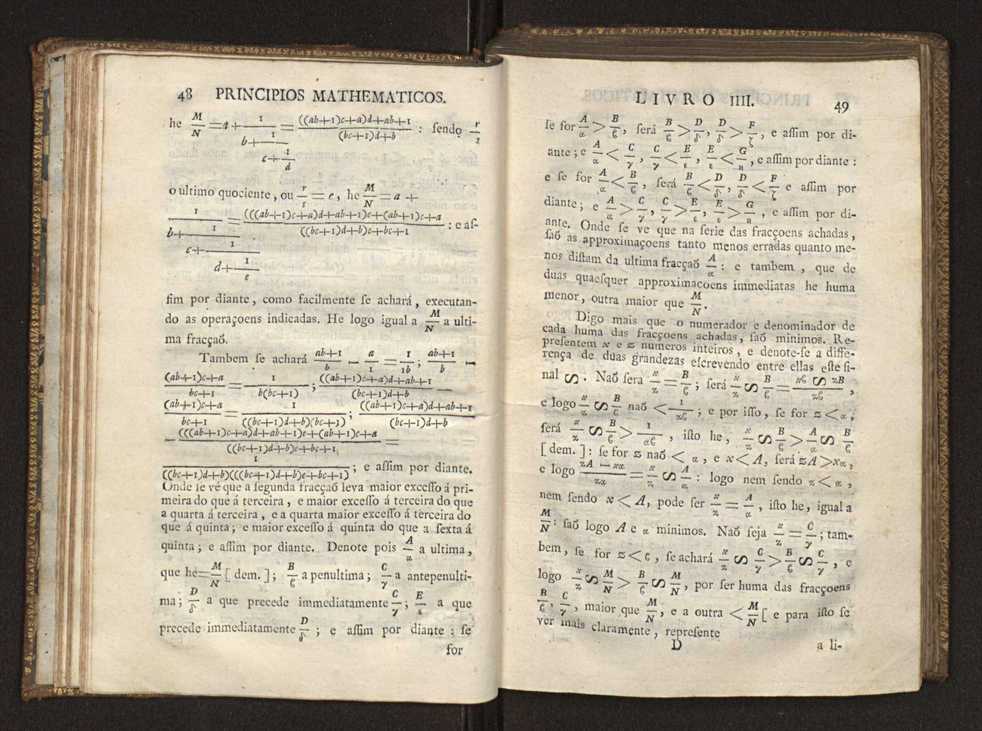 48 PRINCIPIOS MATHEMATICOS.
he M/N = a + 1/(b + 1/(c + 1/d)) = (((ab+1)c+a)d+ab+1)/((bc+1)d+b) : ſendo r/1
o ultimo quociente, ou r/1 = e, he M/N = a +
1/(b + 1/(c + 1/(d + 1/e))) = ((((ab+1)c+a)d+ab+1)e+(ab+1)c+a)/(((bc+1)d+b)e+bc+1) : e aſ-
ſim por diante, como facilmente ſe achará, executan-
do as operaçoens indicadas. He logo igual a M/N a ulti-
ma fracçaõ.
Tambem ſe achará (ab+1)/b − a/1 = 1/1b, (ab+1)/b −
((ab+1)c+a)/(bc+1) = 1/(b(bc+1)); (((ab+1)c+a)d+ab+1)/((bc+1)d+b) −
((ab+1)c+a)/(bc+1) = 1/(((bc+1)d+b)(bc+1)); (((ab+1)c+a)d+ab+1)/((bc+1)d+b)
− ((((ab+1)c+a)d+ab+1)e+(ab+1)c+a)/(((bc+1)d+b)e+bc+1) =
1/(((bc+1)d+b)(((bc+1)d+b)e+bc+1)); e aſſim por diante.
Onde ſe vê que a ſegunda fracçaõ leva maior exceſſo á pri-
meira do que á terceira, e maior exceſſo á terceira do que
a quarta á terceira, e a quarta maior exceſſo á terceira do
que á quinta; e maior exceſſo á quinta do que a ſexta á
quinta; e aſſim por diante. Denote pois A/α a ultima,
que he = M/N [ dem. ]; B/ϐ a penultima; C/γ a antepenulti-
ma; D/δ a que precede immediatamente C/γ; E/ε a que
precede immediatamente D/δ; e aſſim por diante: ſe
for
LIVRO IIII. 49
ſe for A/α > B/ϐ, ſerá B/ϐ > D/δ, D/δ > F/ζ, e aſſim por di-
ante; e A/α < C/γ, C/γ < E/ε, E/ε < G/η, e aſſim por diante:
e ſe for A/α < B/ϐ, ſerá B/ϐ < D/δ, D/δ < F/ζ e aſſim por
diante; e A/α > C/γ, C/γ > E/ε, E/ε > G/η, e aſſim por di-
ante. Onde ſe ve que na ſerie das fracçoens achadas,
ſaõ as approximaçoens tanto menos erradas quanto me-
nos diſtam da ultima fracçaõ A/α: e tambem, que de
duas quaeſquer approximaçoens immediatas he huma
menor, outra maior que M/N.
Digo mais que o numerador e denominador de
cada huma das fracçoens achadas, ſaõ minimos. Re-
preſentem x e z numeros inteiros, e denote-ſe a diffe-
rença de duas grandezas eſcrevendo entre ellas eſte ſi-
nal ∽. Naõ ſerá x/z = B/ϐ; ſerá x/z ∽ B/ϐ = (xϐ ∽ zB)/zϐ,
e logo x/z ∽ B/ϐ naõ < 1/zϐ; e por iſſo, ſe for z < α,
ſerá x/z ∽ B/ϐ > 1/αϐ, iſto he, x/z ∽ B/ϐ > A/α ∽ B/ϐ
[ dem. ]: ſe for z naõ < α, e x < A, ſerá zA > xα,
e logo (zA − xα)/zα = x/z ∽ A/α: logo nem ſendo z < α,
nem ſendo x < A, pode ſer x/z = A/α, iſto he, igual a
M/N: ſaõ logo A e α minimos. Naõ ſeja x/z = C/γ; tam-
bem, ſe for z < ϐ, ſe achará x/z ∽ C/γ > B/ϐ ∽ C/γ, e
logo x/z ∽ M/N > B/ϐ ∽ M/N, por ſer huma das fracçoens
B/ϐ, C/γ, maior que M/N, e a outra < M/N [ e para iſto ſe
ver mais claramente, repreſente
D a li-